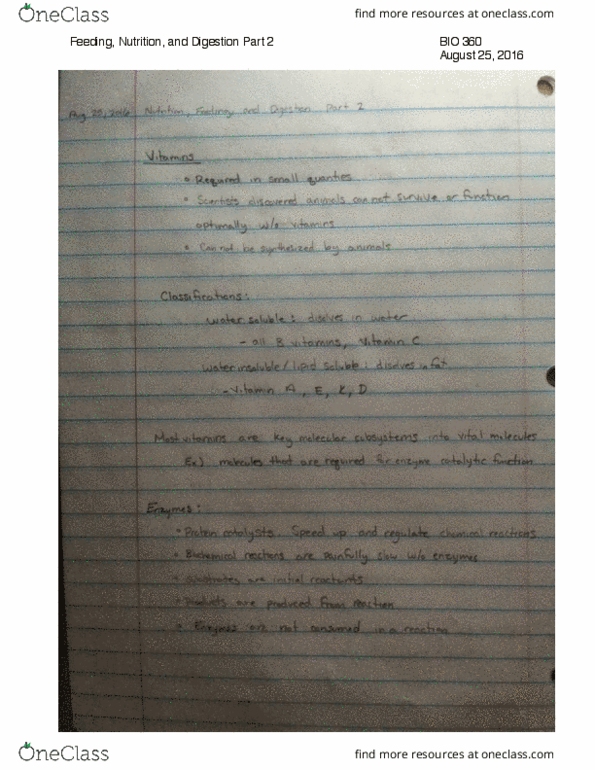 OneClass
find more resources at oneclass.com
Feeding, Nutrition, and Digestion Part 2
BIO 360
August 25, 2016
Aug 25, 2016 Nutrition, Feeding, and Digestion Part 2
Vitamins
• Required in small quanties
• Scientists discovered animals can not survive or function
optimally w/o vitamins
• Can not be synthesized by animals
Classifications:
water soluble: disolves in water
- all B vitamins, Vitamin C
water insoluble/lipid soluble: disolves in fat
- Vitamin A, E, K, D
Most vitamins are key molecular subsystems into vital molecules
Ex.) molecules that are required for enzyme catalytic function
Enzymes:
• Protein catalysts. Speed up and regulate chemical reactions
• Biochemical reactions are painfully slow w/o enzymes
• Substrates are initial reactants
• Products are produced from reaction
• Enzymes are not consumed in a reaction
OneClass
find more resources at oneclass.com